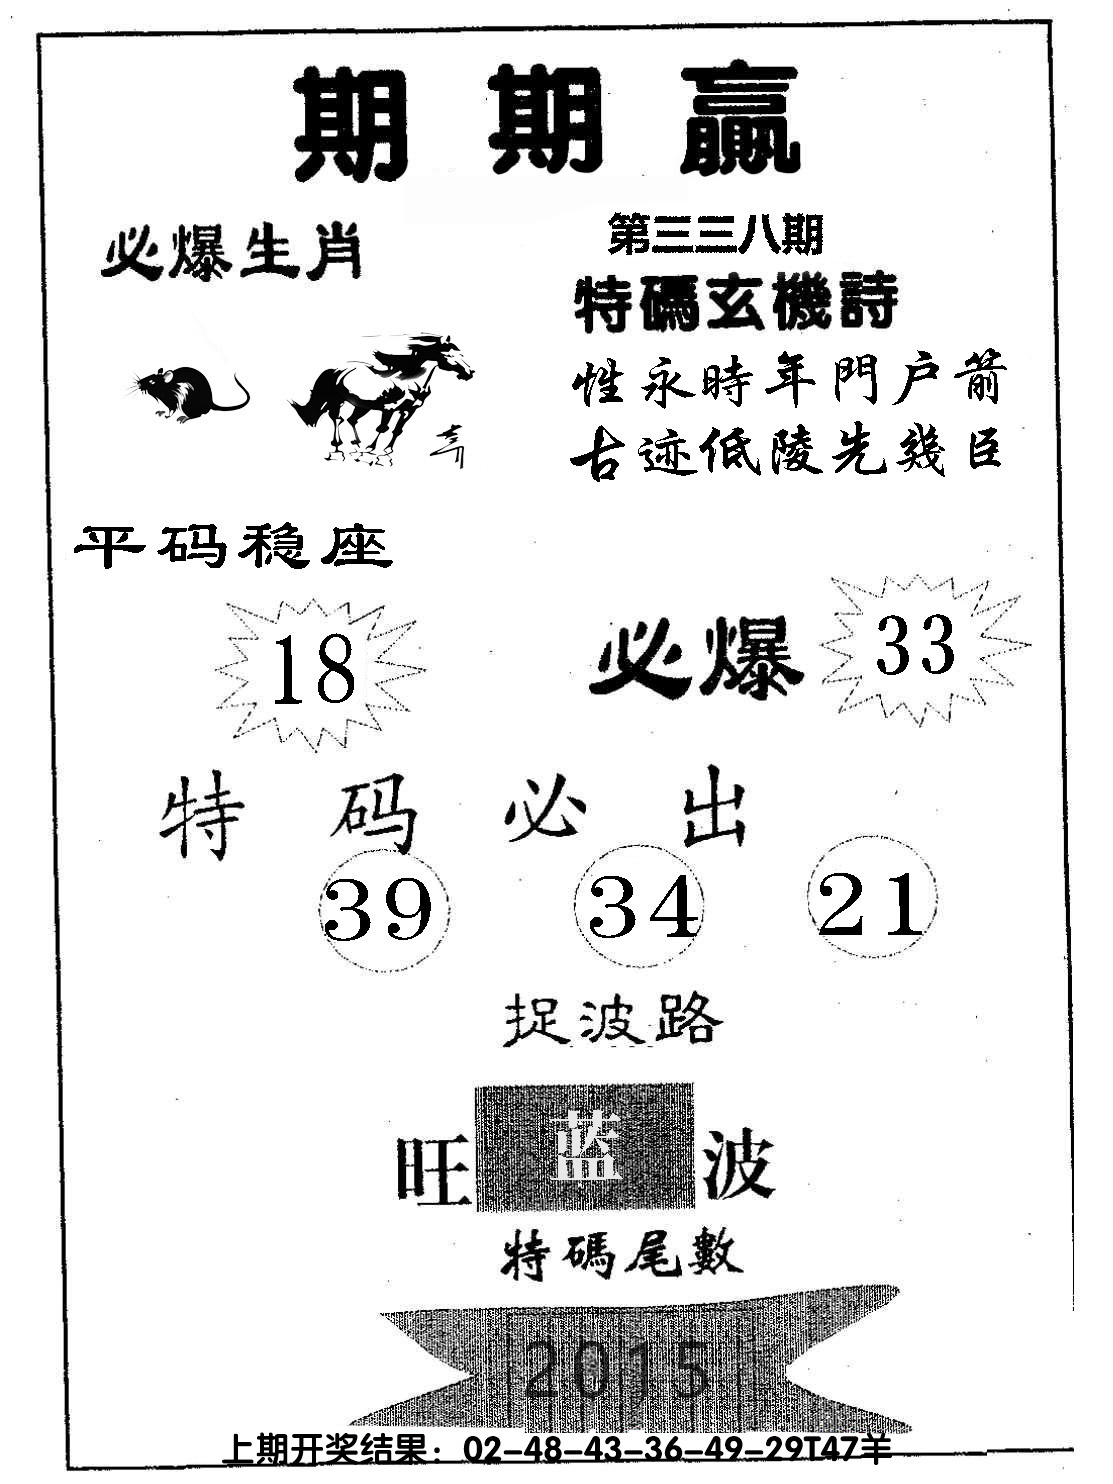 期期贏
必爆生肖
第三三八期
特碼玄機詩
性永時年門户箭
古迹低陵先幾臣
平码稳座
18
必爆 33
特码必出
39 34 21
捉波路
旺蓝波
特碼尾數
2015
上期开奖结果：02-48-43-36-49-29T47羊